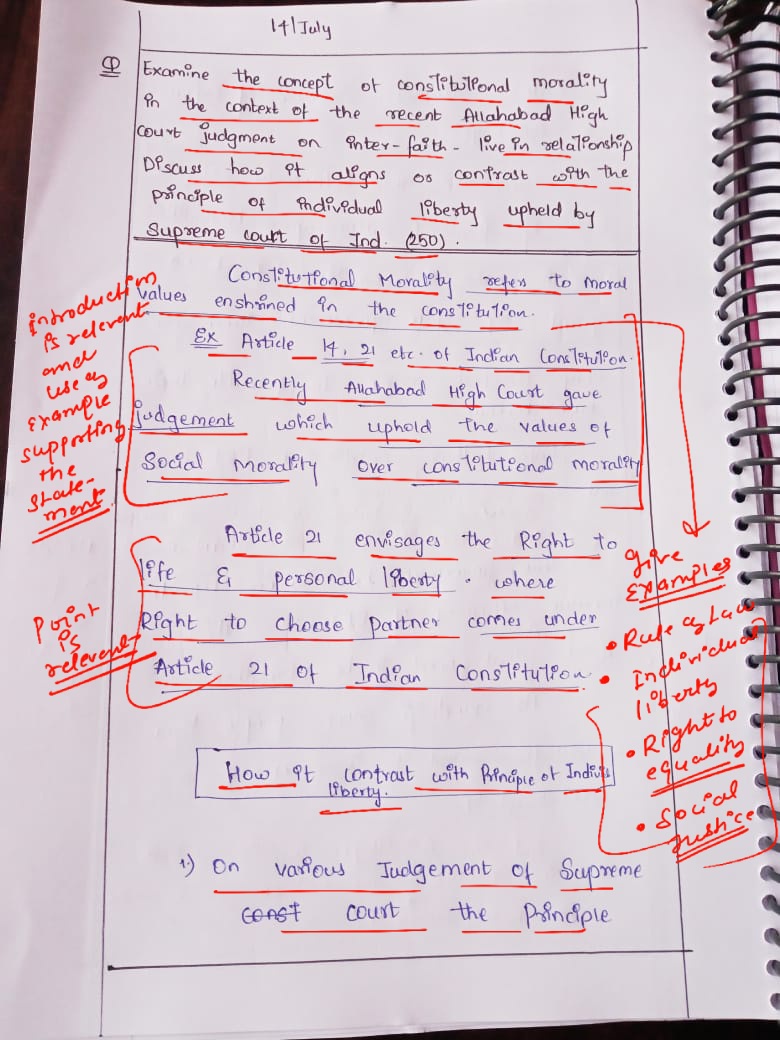 14/July
Q Examine the concept of constitutional morality
in the context of the recent Allahabad High
court judgment on inter-faith-live in relationship
Discuss how it aligns or contrast with the
principle of individual liberty upheld by
Supreme court of Ind. (250).
Constitutional Morality refers to moral
values enshrined in the constitution.
Ex Article 14, 21 etc. of Indian Constitution.
Recently Allahabad High Court gave
judgement which uphold the values of
Social Morality over constitutional morality
introduction
is relevant
and
use of
example
supporting
the
state-
ment
Article 21 envisages the Right to
life & personal liberty. where
Right to choose Partner comes under
Article 21 of Indian Constitution.
Point
is
relevent
give
Examples
• Rule of Law
• Individual
liberty
• Right to
equality
• Social
Justice
How it contrast with Principle of Indivi
liberty.
1.) On various Judgement of Supreme
const court the Principle